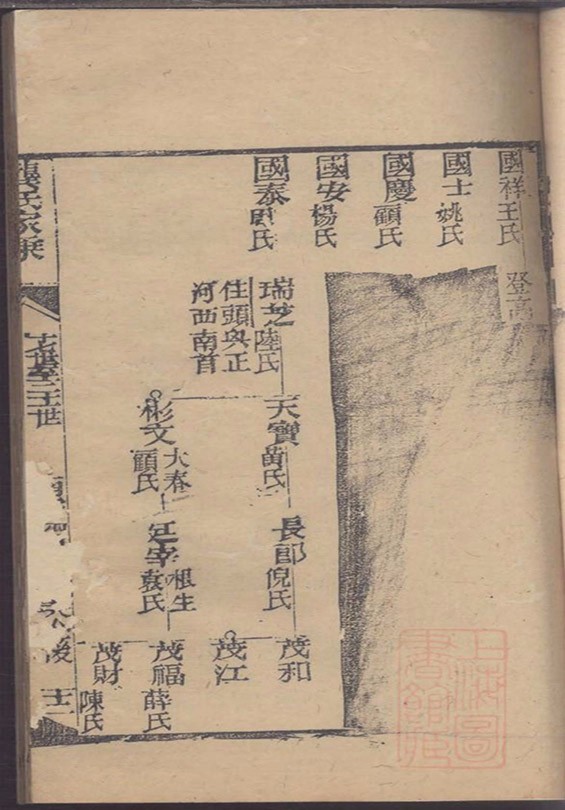 國祥王氏
登高
國士姚氏
國慶顧氏
國安楊氏
國泰顧氏
瑞芝陸氏
住頭與正
河西南首
天寶黃氏
長郎倪氏
茂和
茂江
彬文大春
顧氏
根生
袁氏
茂福薛氏
茂財陳氏
龔氏家乘
世至
世
上海圖
書館藏